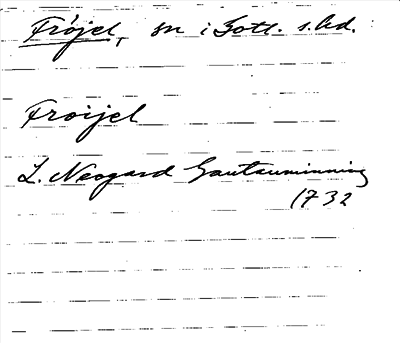 Fröjel, sn i Gotl. s. hd.
Froijel
L. Neogard Gautauminning
1732